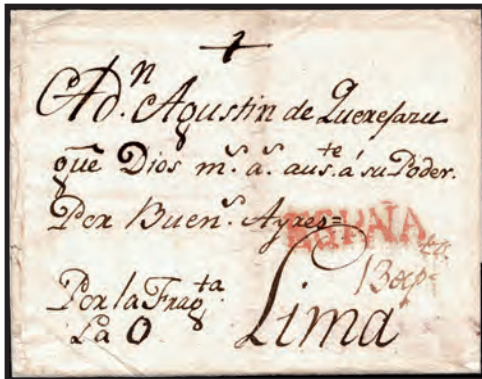 +
A D.n Agustin de Querexazu
que Dios m.s a.s aus.te á su Poder.
Por Buen.s Ayres=
ESPAÑA
Por la Frag.ta
La O
Lima